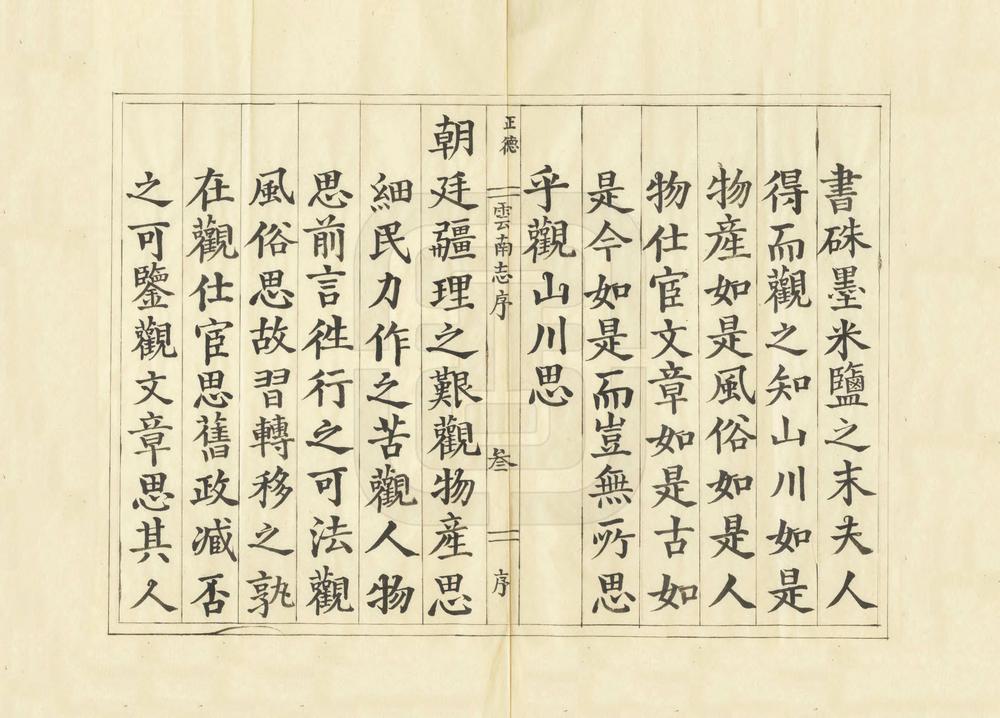 書硃墨米鹽之末夫人
得而觀之知山川如是
物産如是風俗如是人
物仕宦文章如是古如
是今如是而豈無所思
乎觀山川思
正德
雲南志序
叁
序
朝廷疆理之艱觀物産思
細民力作之苦觀人物
思前言徃行之可法觀
風俗思故習轉移之孰
在觀仕宦思舊政臧否
之可鑒觀文章思其人